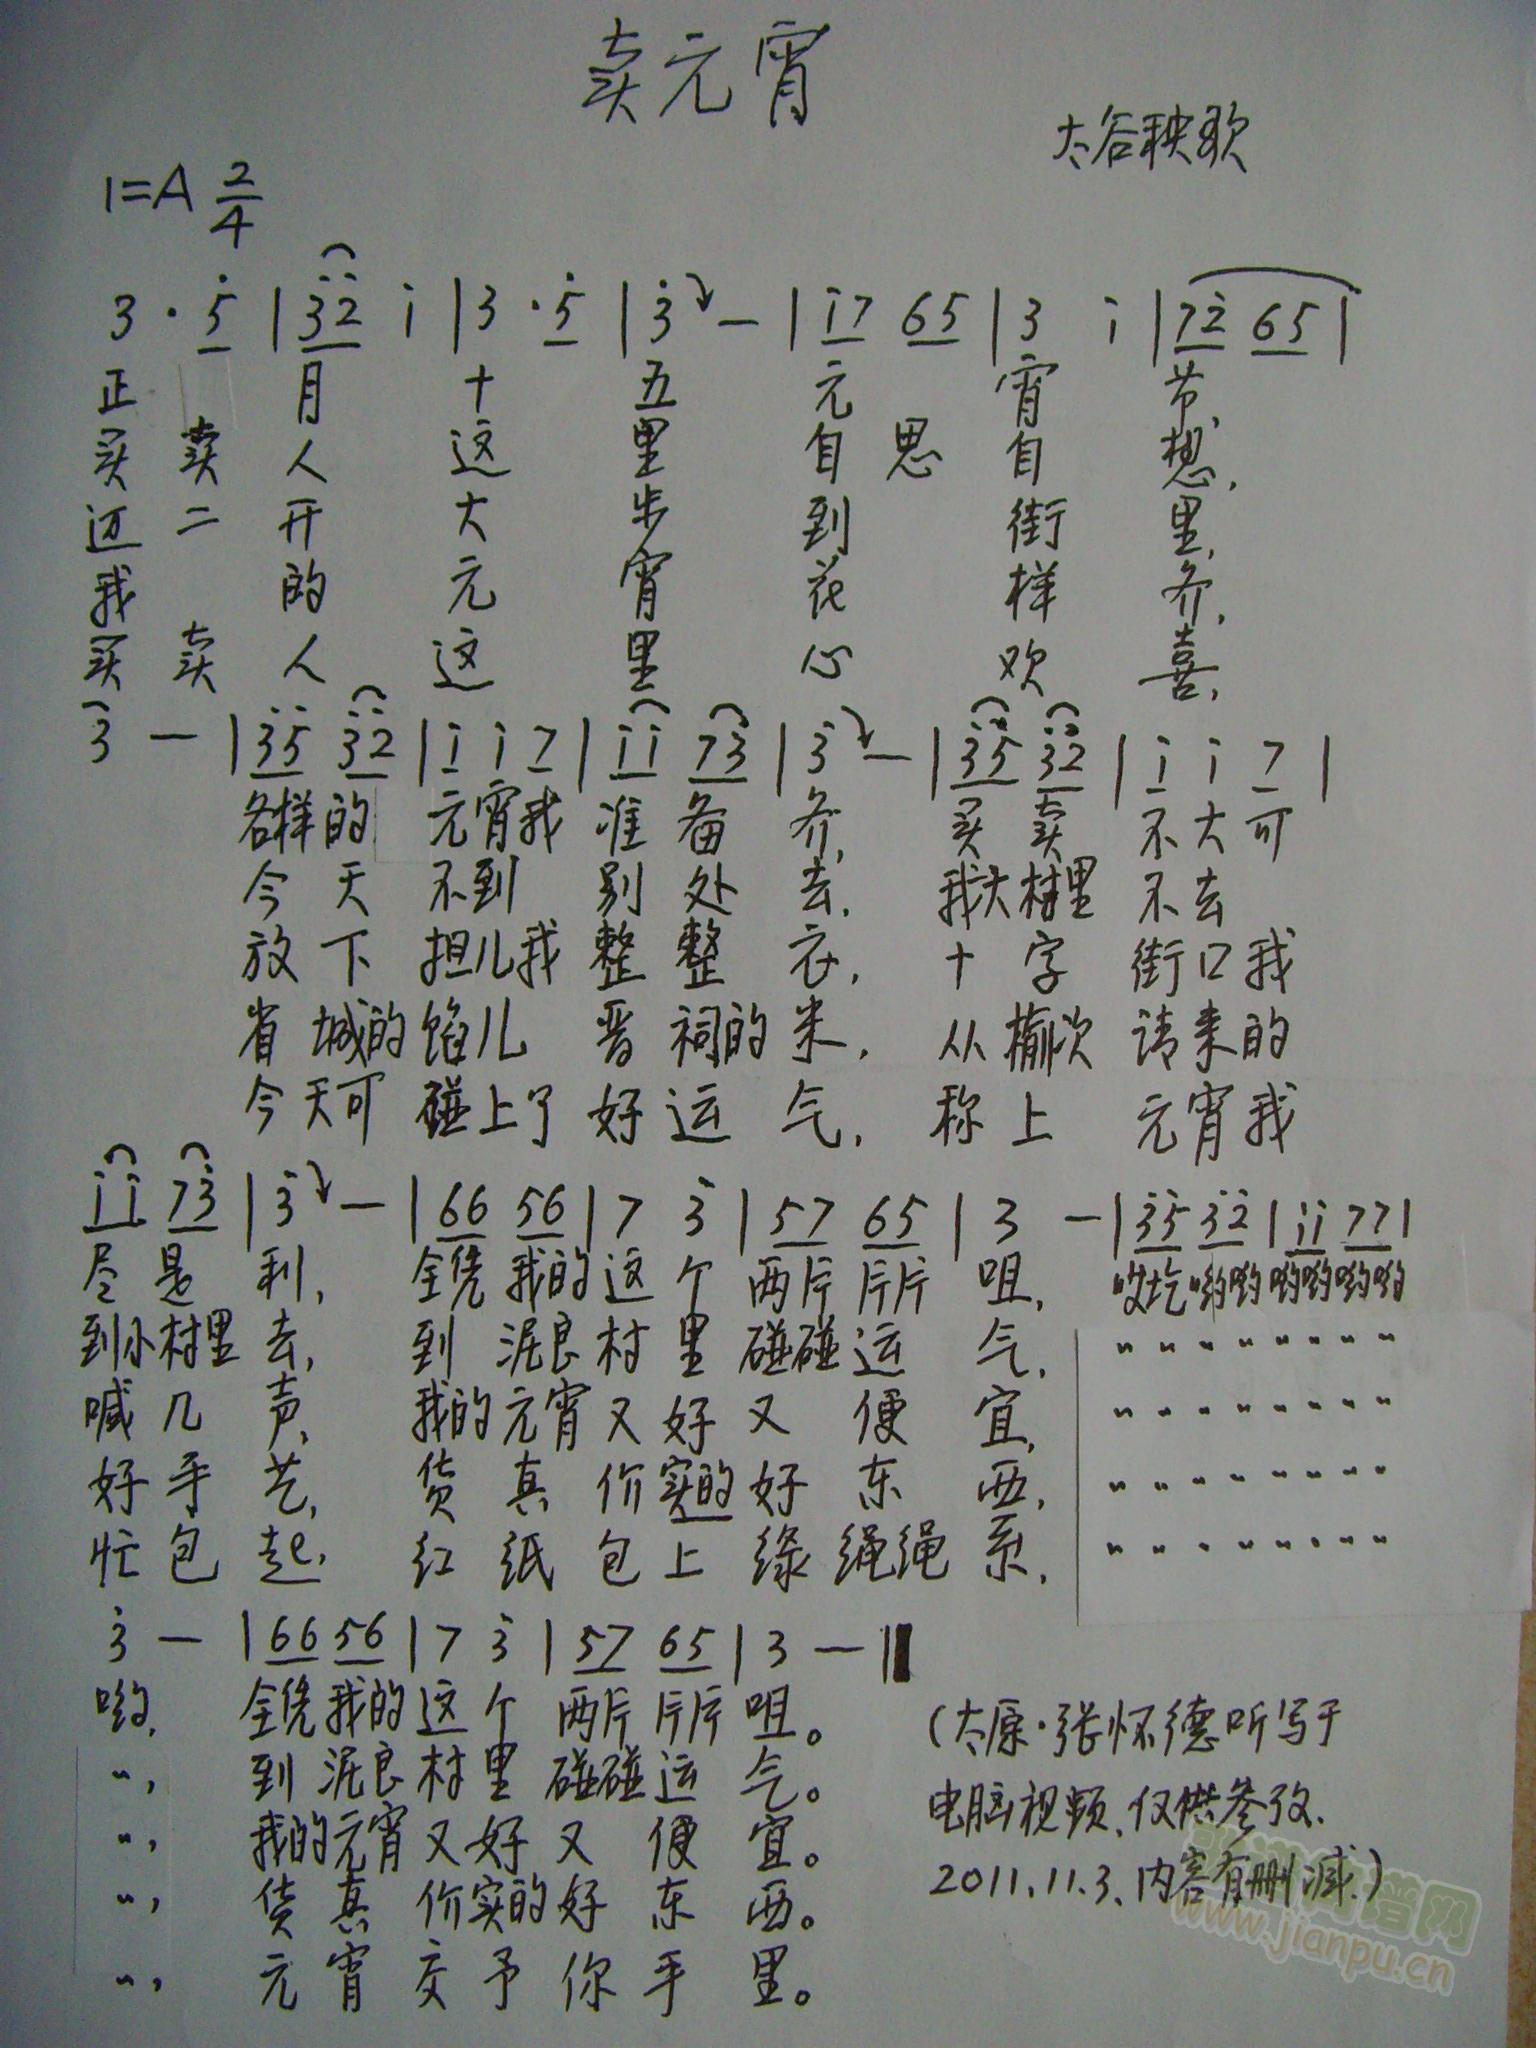 卖元宵
太谷秧歌
1=A 2/4
3·5 |32 i |3·5 |3 - |i7 65 |3 i |72 65 |
正 月 十 五 元 宵 节,
买卖人 这 里 自思自 想,
迈二开 大 步 到 街 里,
我 的 元 宵 花 样 多,
买卖人 这 里 心 欢 喜,
3 - |35 32 |i i 7 |ii 73 |3 - |35 32 |i i 7 |
各样的 元宵我 准备 齐, 买卖 不大可
今天 不到 别处 去, 我大村里 不去
放下 担儿我 整整 衣, 十字 街口我
省城的 馅儿 晋祠的 米, 从榆次 请来的
今天可 碰上了 好运 气, 称上 元宵我
ii 73 |3 - |66 56 |7 3 |57 65 |3 - |35 32 |ii 77 |
尽是 利, 全凭我的这个两片片片咀, 哟哟 哟哟哟哟
到小村里去, 到泥良村里碰碰运气, 〃〃〃〃〃〃〃〃
喊几 声, 我的元宵又好又便宜, 〃〃〃〃〃〃〃〃
好手 艺, 货真价实的好东西, 〃〃〃〃〃〃〃〃
忙包 起, 红纸包上绿绳绳系, 〃〃〃〃〃〃〃〃
3 - |66 56 |7 3 |57 65 |3 - ‖
哟, 全凭我的这个两片片片咀。
〃, 到泥良村里碰碰运气。
〃, 我的元宵又好又便宜。
〃, 货真价实的好东西。
〃, 元宵交予你手里。
(太原·张怀德听写于
电脑视频、仅供参考.
2011.11.3、内容有删减.)
www.jianpu.cn